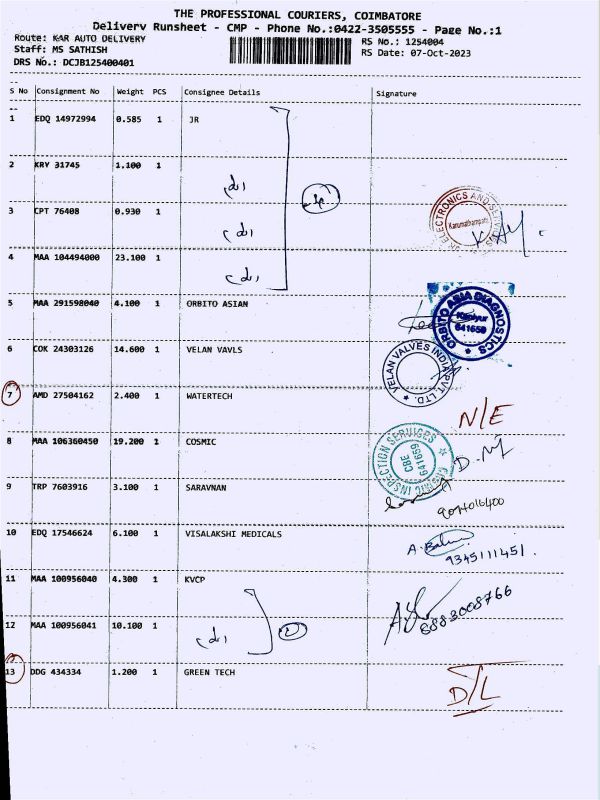 THE PROFESSIONAL COURIERS, COIMBATORE
Delivery Runsheet - CMP - Phone No.:0422-3505555 - Page No.:1
Route: KAR AUTO DELIVERY
RS No.: 1254004
Staff: MS SATHISH
RS Date: 07-Oct-2023
DRS No.: DCJB125400401
S No Consignment No Weight PCS Consignee Details Signature
1 EDQ 14972994 0.585 1 JR
2 KRY 31745 1.100 1
3 CPT 76408 0.930 1
ELECTRONICS AND
4 MAA 104494000 23.100 1
5 MAA 291598040 4.100 1 ORBITO ASIAN
ORBITO ASIA DIAGNOSTICS
641659
6 COK 24303126 14.600 1 VELAN VAVLS
VELAN VALVES INDIA PVT. LTD.
7 AMD 27504162 2.400 1 WATERTECH N/E
8 MAA 106360450 19.200 1 COSMIC
COSMIC INSPECTION SERVICES
CBE
641659
9 TRP 7603916 3.100 1 SARAVNAN
10 EDQ 17546624 6.100 1 VISALAKSHI MEDICALS
9345111451.
11 MAA 100956040 4.300 1 KVCP
8883008766
12 MAA 100956041 10.100 1
13 DDG 434334 1.200 1 GREEN TECH
D/L